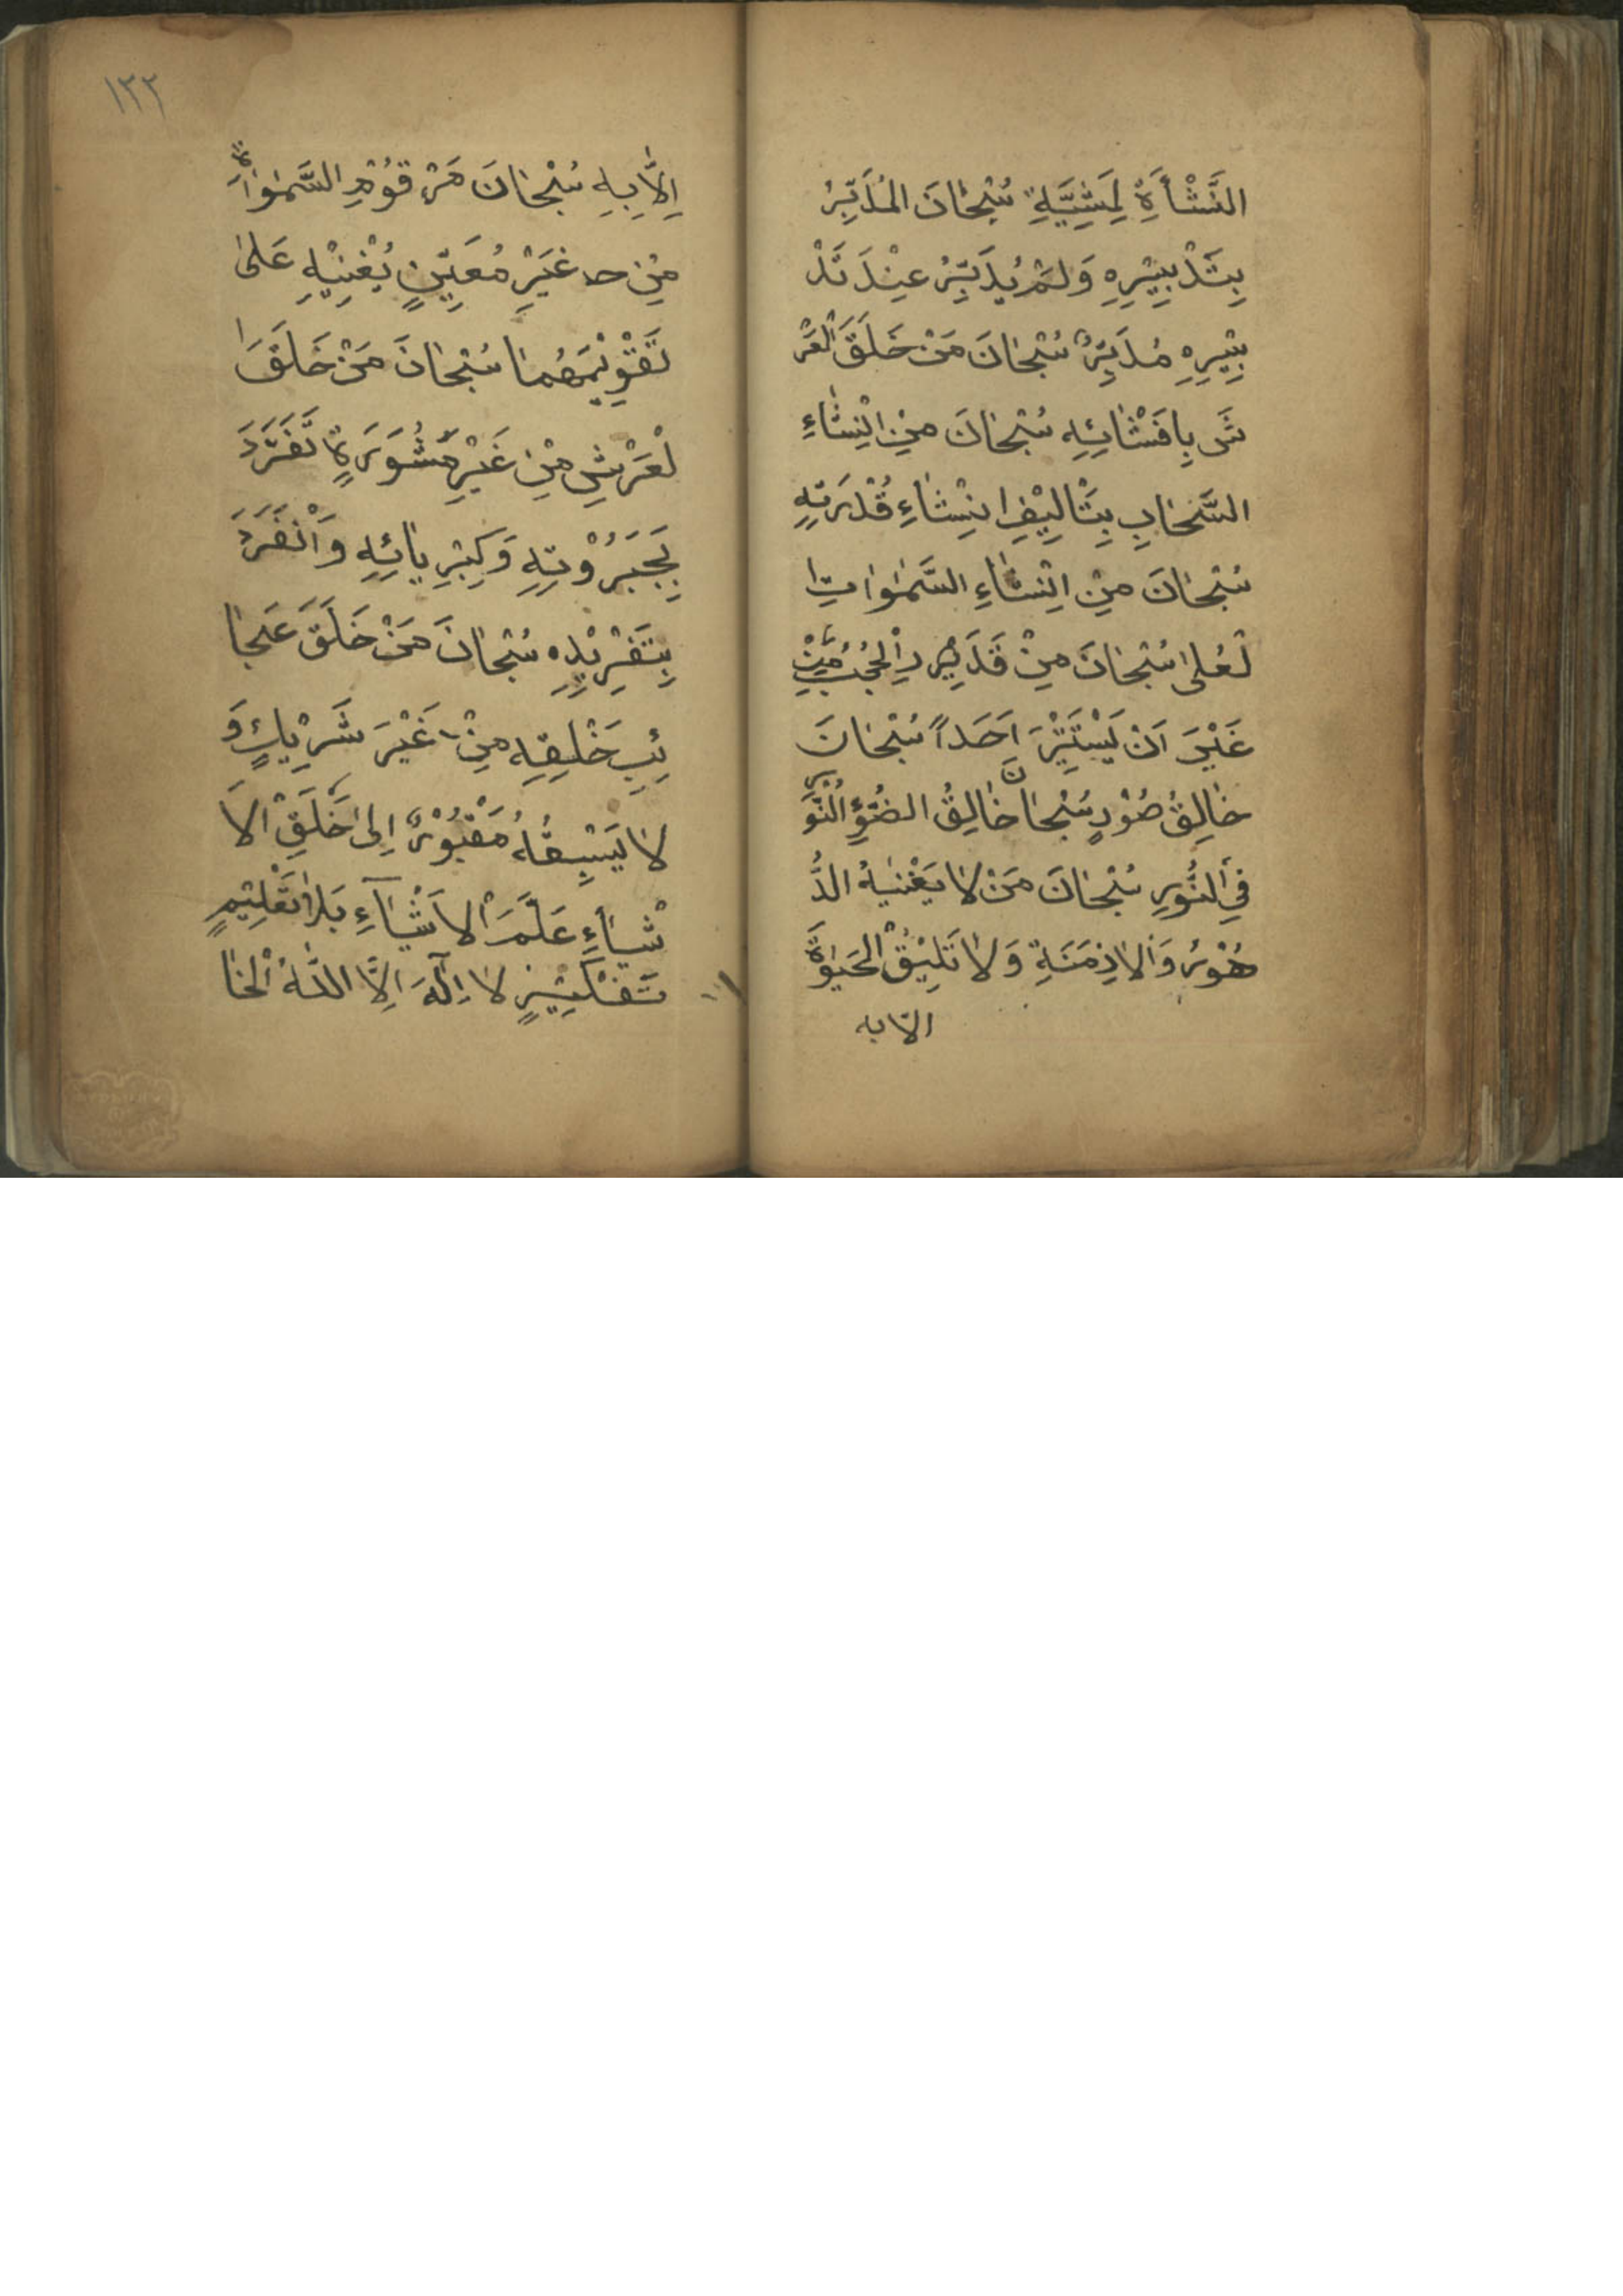 النَّشْأَةِ لِمَشِيَّةِ سُبْحَانَ الْمُدَبِّرُ
بِتَدْبِيْرِهِ وَلَمْ يُدَبِّرُ عِنْدَ تَدْ
بِيْرِهِ مُدَبِّرٌ سُبْحَانَ مَنْ خَلَقَ الْعَرْ
شَ بِافَشَائِهِ سُبْحَانَ مِنْ اِنْشَاءِ
السَّحَابِ بِتْالِيْفِ اِنْشَاءِ قُدْرَتِهِ
سُبْحَانَ مِنْ اِنْشَاءِ السَّمٰوَاتِ ا
لْعُلىٰ سُبْحَانَ مِنْ قَدَرِ الْحُجُبُ مِنْ
غَيْرَ اَنْ يَسْتَتِرَ اَحَداً سُبْحَانَ
خَالِقُ صُوْرِ سُبْحَانَ خَالِقُ الضُّوْءِ النُّوْرِ
فِي النُّوْرِ سُبْحَانَ مَنْ لَا يَغْنِيهُ الدُّ
هُوْرُ وَالْاَزِمَنَةِ وَلَا تَلِيْقُ الْحَيٰوةُ
الّا به
١٣٢
اِلَّا بِهِ سُبْحَانَ مَنْ قَوَّمِ السَّمٰوَاتِ
مِنْ غَيْرِ مُعَيِّنٍ يُغْنِيْهِ عَلىٰ
تَقْوِيْمَهُمَا سُبْحَانَ مَنْ خَلَقَ ا
لْعَرْشِ مِنْ غَيْرِ مَشُوَرَةٍ تَفَرَّدَ
بِجَبَرُوْتِهِ وَكِبْرِيَائِهِ وَاَنْفَرَدَ
بِتَفْرِيْدِهِ سُبْحَانَ مَنْ خَلَقَ عَجَا
ئِبِ خَلْقِهِ مِنْ غَيْرَ شَرِيْكٍ وَ
لَا يَسْبِقُهُ اِلىٰ خَلْقِ الْاَ
شْيَاءِ عَلَّمَ الْاَشْيَاءِ بَلَا تَعْلِيْمٍ
تَفْكِيْرٍ لَا اِلٰهَ اِلَّا اللّٰهُ الْخَا